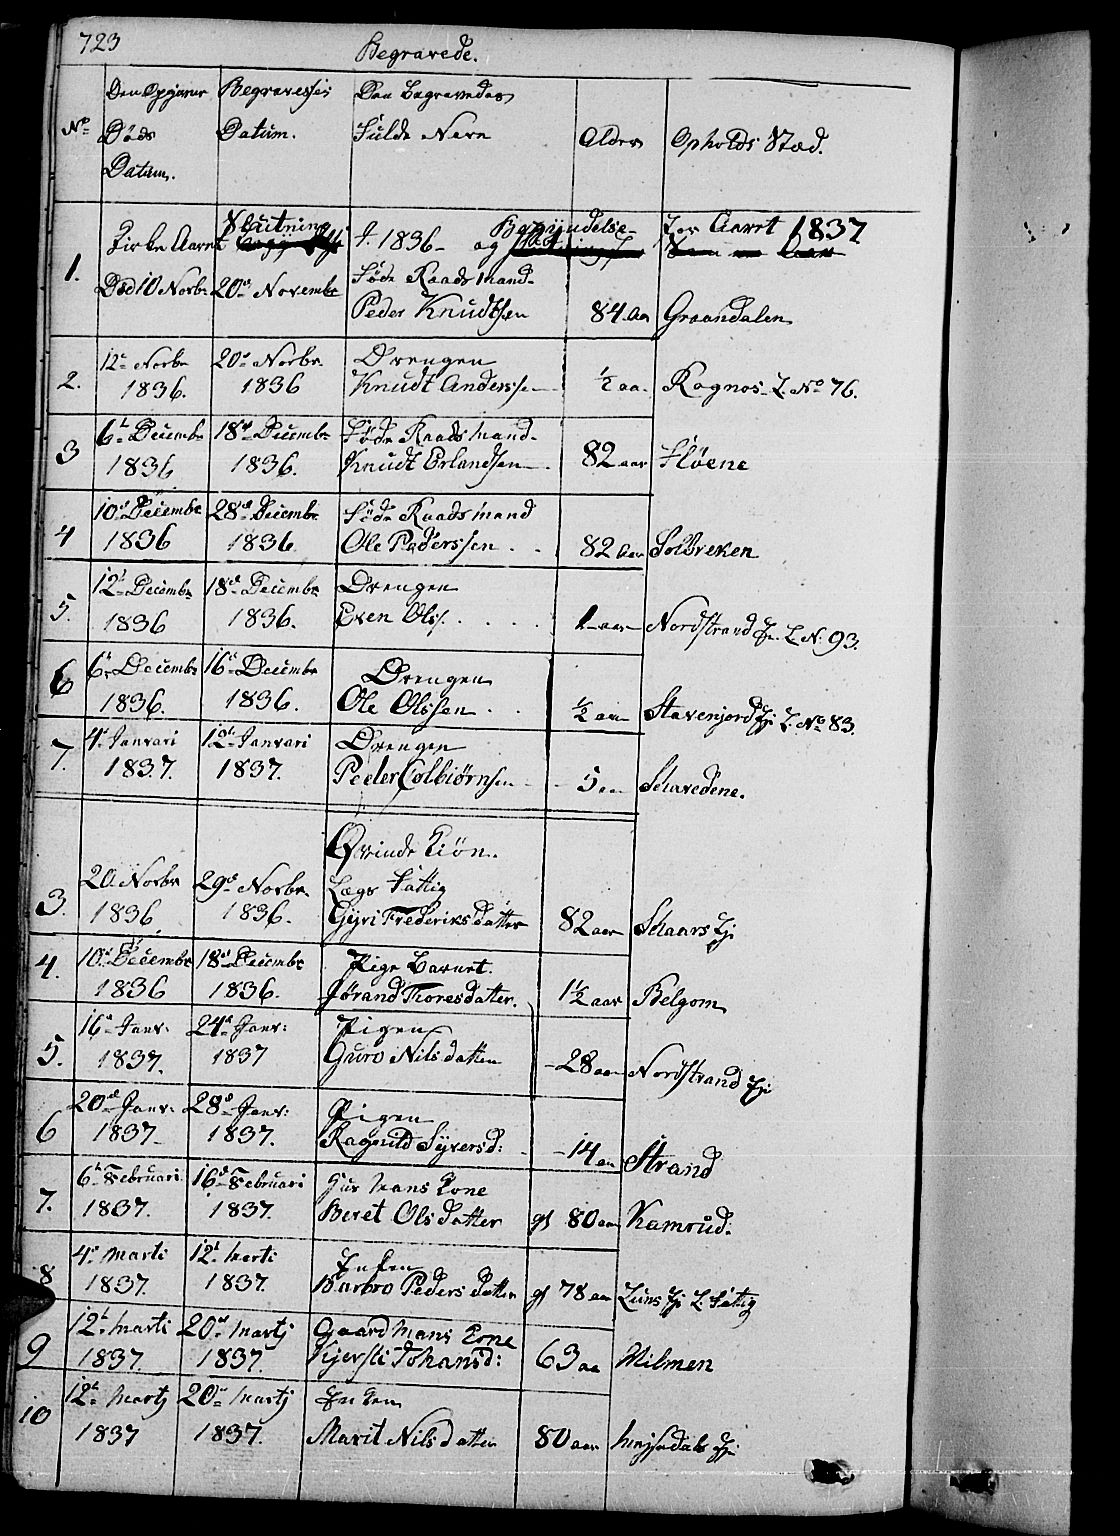 723
Begravede.
No
Den Opgivne Døds Datum.
Begravelses Datum.
Den Begravedes Fulde Navn
Alder
Opholds Stæd.
Kirke Aaret Slutning f. 1836 - og Begyndelse for Aaret 1837
1. Død 10 Novbr 20de Novembr Føde Raadsmand Peder Knudtsen 84 aar Graandalen
2. 12te Novbr 1836. 20de Novbr 1836 Drengen Knudt Anderssen ½ aar Rognos L. No 76.
3 6te Decembr 1836 18de Decembr 1836. Føde Raadsmand Knudt Erlandsen 82 aar Fløene
4 10de Decembr 1836 28de Decembr 1836 Føde Raadsmand Ole Pederssen 82 aar Solbreken
5. 12te Decembr 1836 18de Decembr 1836. Drengen Even Ols. 1 aar Nordstrand Ej. L. N. 93.
6 6te Decembr 1836. 16de Decembr 1836. Drengen Ole Olssen ½ aar Stavenjord Ej L. No 83.
7. 4de Januari 1837. 12te Januari 1837. Drengen Peder Colbiørnsen 5 aar
Qvinde Kiøn.
3. 20 Novbr 1836 29de Novbr 1836. Lægs Fattig Gyri Frederiksdatter 82 aar Skaars Ej
4. 10de Decembr 1836 18de Decembr 1836. Pige Barnet Jørand Thoresdatter. 1½ aar Belgom
5. 16de Janv: 1837. 24de Janv: 1837 Pigen Guro Nilsdatter 28 aar Nordstrand Ej
6 20de Janv: 1837 28de Janv: 1837. Pigen Ragnild Syversd: 14 aar Strand
7. 6te Februari 1837. 16de Februari 1837. Huusmans Kone Beret Olsdatter gl 80 aar Kamrud.
8 4de Marti 1837. 12te Marti 1837. Enken Barbro Pedersdatter gl 78 aar
9 12te Marti 1837. 20de Martj 1837 Gaardmans Kone Kjersti Johansd: 63 aa Milmen
10 12te Martj 1837 20de Martj 1837. Enken Marit Nilsdatter 80 aar